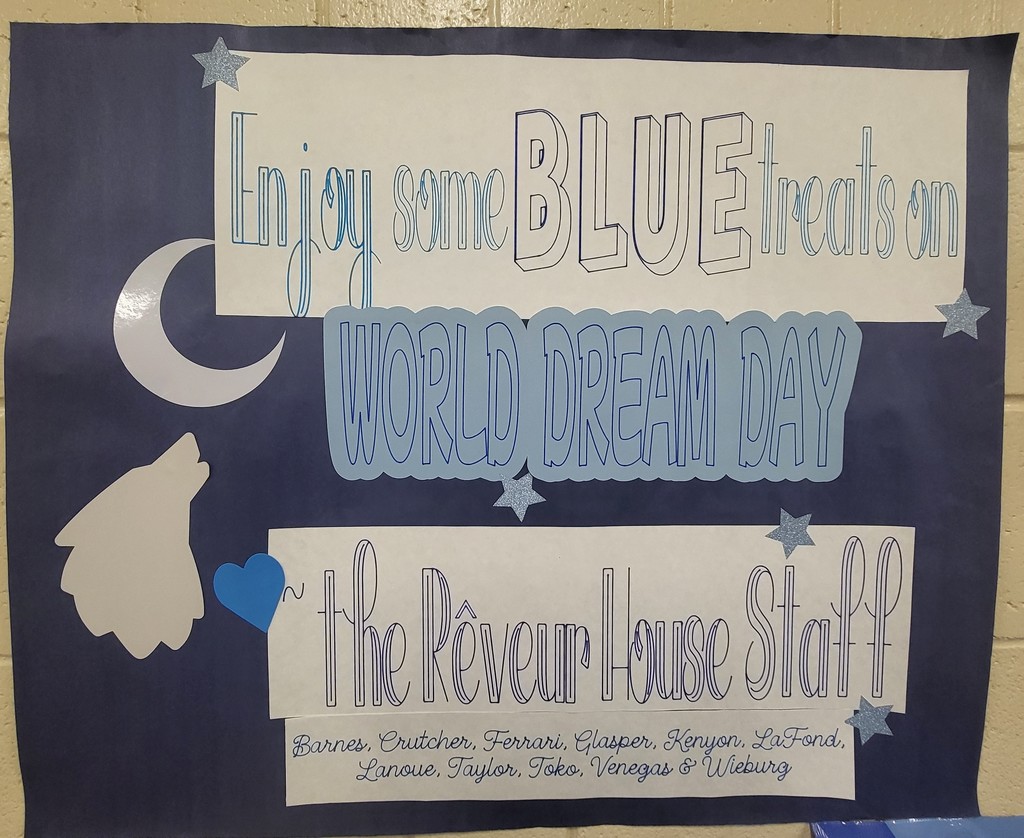 Enjoy some BLUE treats on
WORLD DREAM DAY
~ the Rêveur House Staff
Barnes, Crutcher, Ferrari, Glasper, Kenyon, LaFond,
Lanoue, Taylor, Toko, Venegas & Wieburg